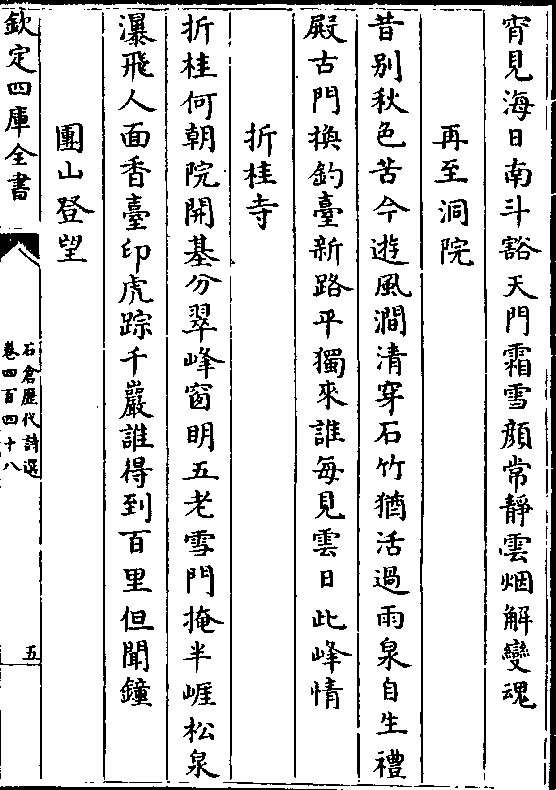 宵見海日南斗豁天門霜雪顔常靜雲烟解變魂
再至洞院
昔别秋色苦今遊風澗清穿石竹猶活過雨泉自生禮
殿古門換釣臺新路平獨來誰每見雲日此峰情
折桂寺
折桂何朝院開基分翠峰窗明五老雪門掩半崕松泉
瀑飛人面香臺印虎踪千巖誰得到百里但聞鐘
團山登望
欽定四庫全書
石倉歷代詩選
卷四百四十八
五